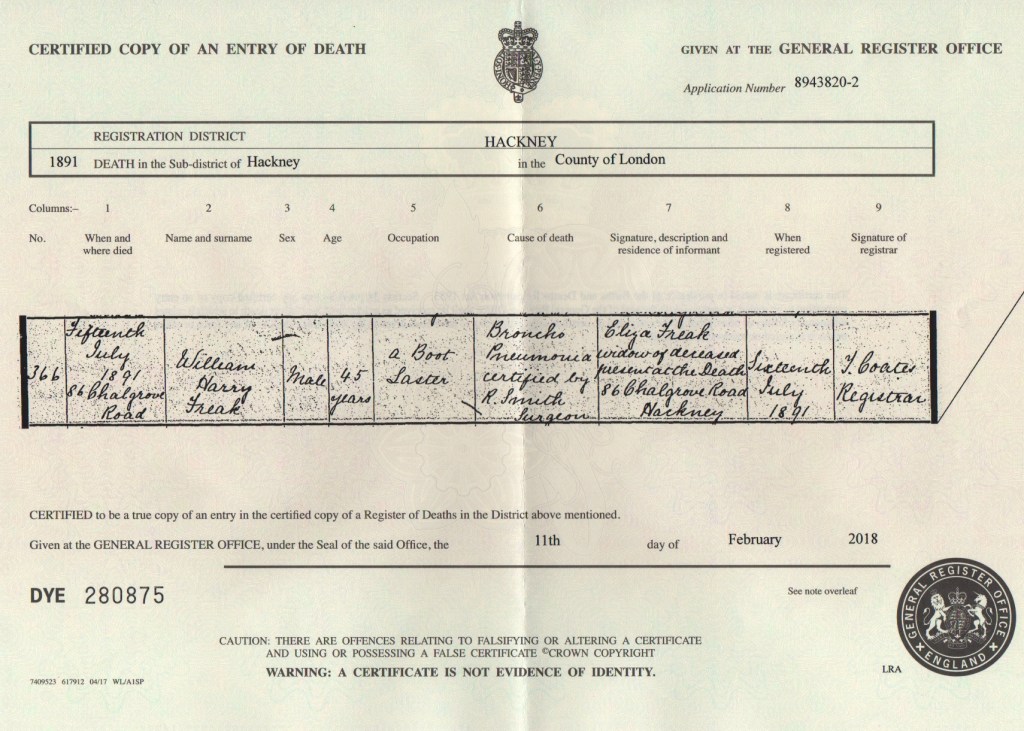 CERTIFIED COPY OF AN ENTRY OF DEATH
GIVEN AT THE GENERAL REGISTER OFFICE
Application Number 8943820-2
REGISTRATION DISTRICT HACKNEY
1891 DEATH in the Sub-district of Hackney in the County of London
Columns:– 1 2 3 4 5 6 7 8 9
No. When and where died Name and surname Sex Age Occupation Cause of death Signature, description and residence of informant When registered Signature of registrar
366
Fifteenth
July
1891
86 Chalgrove
Road
William
Harry
Freak
Male
45
years
a Boot
Laster
Broncho
Pneumonia
certified by
R. Smith
Surgeon
Eliza Freak
widow of deceased
present at the Death
86 Chalgrove Road
Hackney
Sixteenth
July
1891
Coates
Registrar
CERTIFIED to be a true copy of an entry in the certified copy of a Register of Deaths in the District above mentioned.
Given at the GENERAL REGISTER OFFICE, under the Seal of the said Office, the 11th day of February 2018
DYE 280875
See note overleaf
GENERAL REGISTER OFFICE
ENGLAND
CAUTION: THERE ARE OFFENCES RELATING TO FALSIFYING OR ALTERING A CERTIFICATE
AND USING OR POSSESSING A FALSE CERTIFICATE ©CROWN COPYRIGHT
WARNING: A CERTIFICATE IS NOT EVIDENCE OF IDENTITY.
7409523 617912 04/17 WL/A1SP
LRA